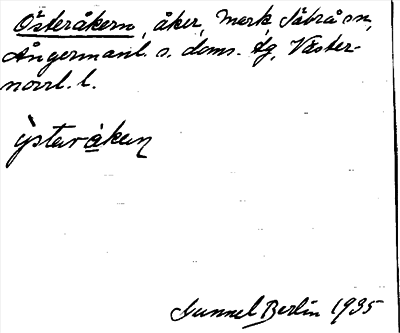 Österåkern, åker, Merk, Säbrå sn,
Ångermanl. s. doms. tg, Väster-
norrl. l.
ỳsteråkeɳ
Gunnel Berlin 1935